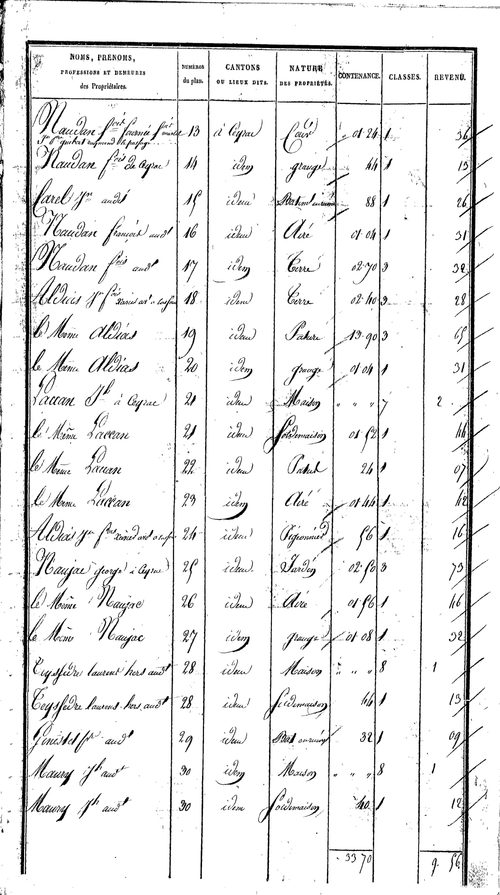 NOMS, PRENOMS, PROFESSIONS ET DEMEURES des Propriétaires. NUMÉROS du plan. CANTONS OU LIEUX DITS. NATURE DES PROPRIÉTÉS. CONTENANCE. CLASSES. REVENU.
Naudan 13 à Ceyrac Cour 01 24 1 36
Naudan fois de Ceyrac 14 idem grange 44 1 13
Carel Jn audt 15 idem 88 1 26
Naudan francois audt 16 idem Airé 01 04 1 31
Naudan fois audt 17 idem Terre 02 70 3 32
18 idem Terre 02 40 3 28
le Même 19 idem Pature 13 90 3 65
le Même 20 idem grange 01 04 1 31
Laccan Jh à Ceyrac 21 idem Maison " " " 7 2
le Même Laccan 21 idem Soldemaison 01 52 1 46
le Même Laccan 22 idem Patus 24 1 07
le Même Laccan 23 idem Airé 01 44 1 42
24 idem Pigeonnier 56 1 16
Naujac george à Ceyrac 25 idem Jardin 02 56 3 73
le Même Naujac 26 idem Airé 01 56 1 46
le Même Naujac 27 idem grange 01 08 1 32
Teyssedre laurent hers audt 28 idem Maison " " " 8 1
Teyssedre laurent hers audt 28 idem Soldemaison 44 1 13
audt 29 idem 32 1 09
Maury Jh audt 30 idem Maison " " " 8 1
Maury Jh audt 30 idem Soldemaison 40 1 12
33 70 9 56